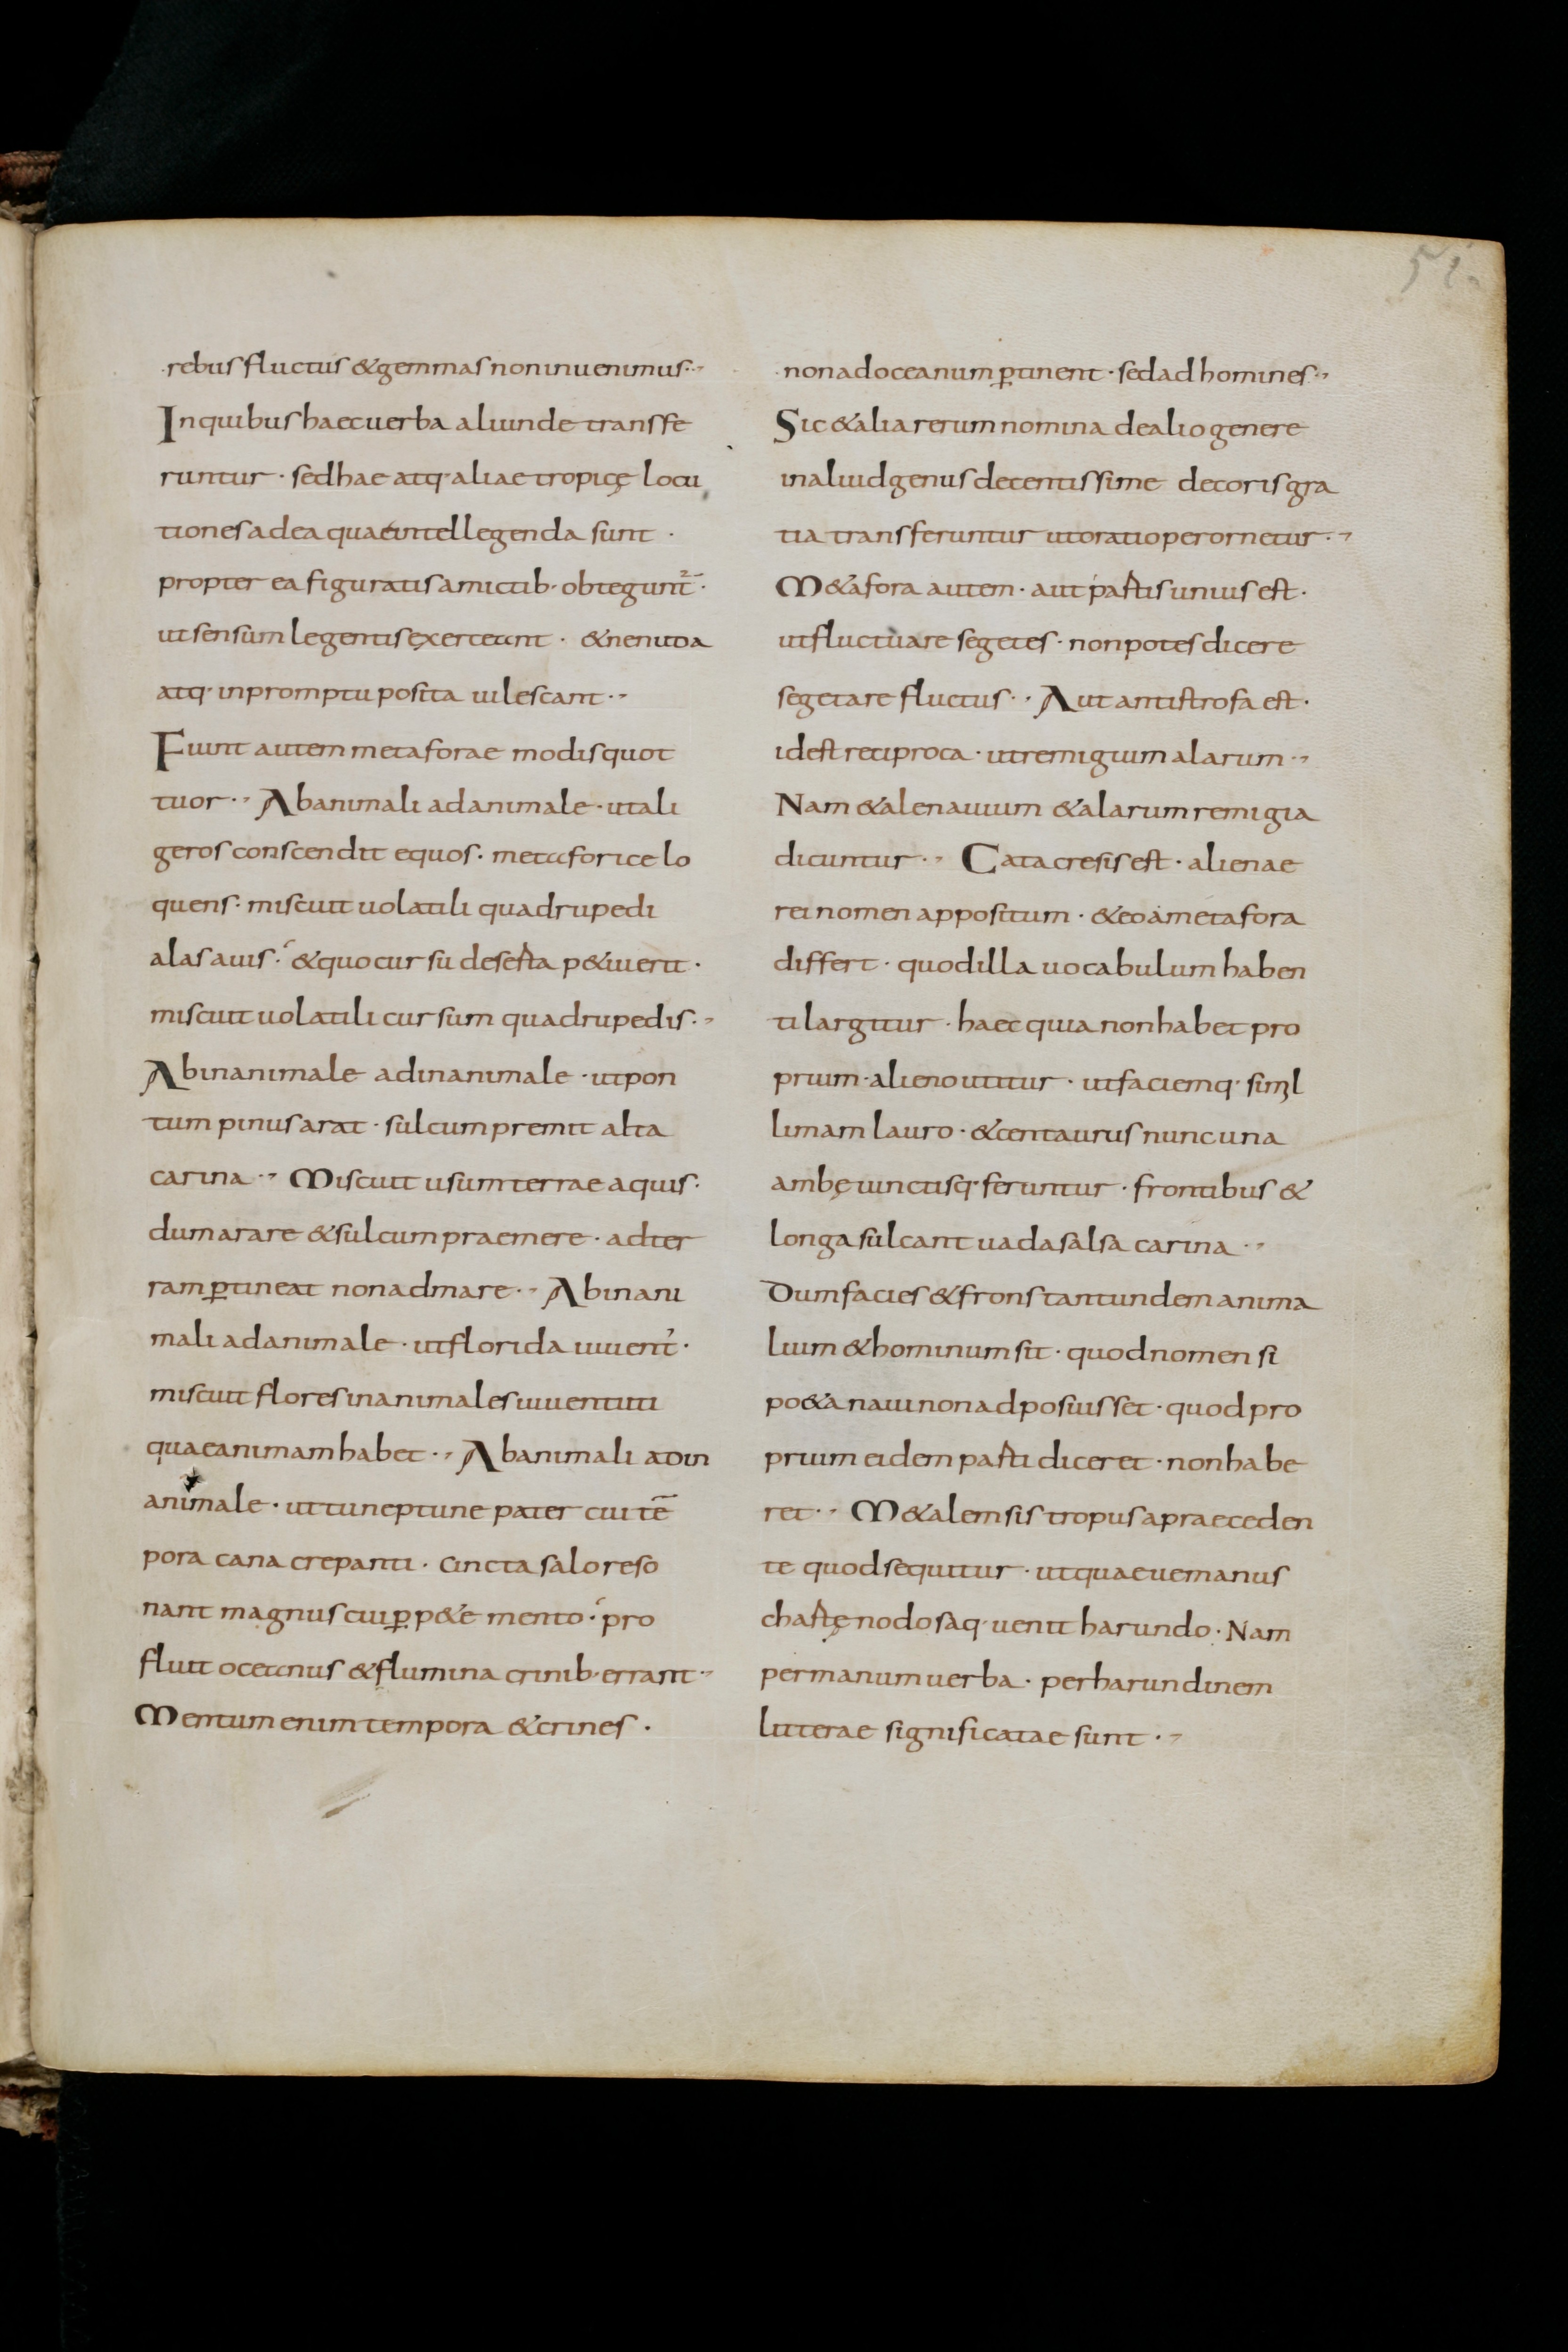 51.
rebus fluctus & gemmas non inuenimus·,
In quibus haec uerba aliunde transfe
runtur · sed hae atq· aliae tropicę locu
tiones ad ea quae intellegenda sunt ·
propter ea figuratis amictib· obtegunt᷑ ·
ut sensum legentis exerceant · & ne nuda
atq· in promptu posita uilescant ·,
Fiunt autem metaforae modis quot
tuor ·, Ab animali ad animale · ut ali
geros conscendit equos · metaforice lo
quens · miscuit uolatili quadrupedi
alas auis · & quo cursu deserta p&iuerit ·
miscuit uolatili cursum quadrupedis ·,
Ab inanimale ad inanimale · ut pon
tum pinus arat · sulcum premit alta
carina ·, Miscuit usum terrae aquis ·
dum arare & sulcum praemere · ad ter
ram ꝑtineat non ad mare ·, Ab inani
mali ad animale · ut florida iuuent' ·
miscuit flores inanimales iuuentuti
quae animam habet ·, Ab animali ad in
animale · ut tu neptune pater cui tē
pora cana crepanti · cincta salo reso
nant magnus cui ꝑp&e mento · pro
fluit oceanus & flumina crinib· errant ·,
Mentum enim tempora & crines ·
non ad oceanum ꝑtinent · sed ad homines ·,
Sic & alia rerum nomina de alio genere
in aliud genus decentissime decoris gra
tia transferuntur ut oratio perornetur ·,
M&afora autem · aut partis unius est ·
ut fluctuare segetes · non potes dicere
segetare fluctus ·, Aut antistrofa est ·
id est reciproca · ut remigium alarum ·,
Nam & ale nauium & alarum remigia
dicuntur ·, Catacresis est · alienae
rei nomen appositum · & eo a metafora
differt · quod illa uocabulum haben
ti largitur · haec quia non habet pro
prium · alieno utitur · ut faciemq· simil
limam lauro · & centaurus nunc una
ambę iunctisq· feruntur · frontibus &
longa sulcant uada salsa carina ·,
Dum facies & frons tantundem anima
lium & hominum sit · quod nomen si
po&a naui non adposuisset · quod pro
prium eidem parti diceret · non habe
ret ·, M&alemsis tropus a praeceden
te quod sequitur · ut quae ue manus
chartę nodosaq· uenit harundo · Nam
per manum uerba · per harundinem
litterae significatae sunt ·,